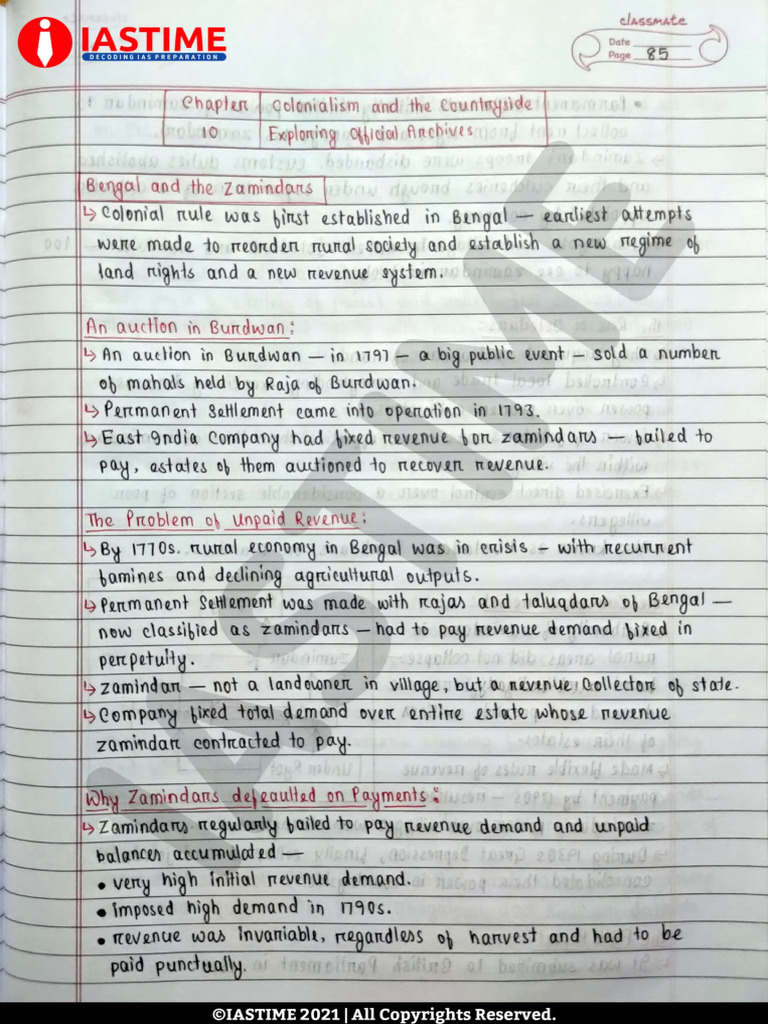 IASTIME
DECODING IAS PREPARATION
classmate
Date
Page 85
Chapter Colonialism and the Countryside
10 Exploring Official Archives
Bengal and the Zamindars
↳ Colonial rule was first established in Bengal — earliest attempts
were made to reorder rural society and establish a new regime of
land rights and a new revenue system.
An auction in Burdwan:
↳ An auction in Burdwan — in 1797 — a big public event — sold a number
of mahals held by Raja of Burdwan.
↳ Permanent Settlement came into operation in 1793.
↳ East India Company had fixed revenue for zamindars — failed to
pay, astates of them auctioned to recover revenue.
The Problem of Unpaid Revenue:
↳ By 1770s. rural economy in Bengal was in crisis — with recurrent
famines and declining agricultural outputs.
↳ Permanent Settlement was made with rajas and taluqdars of Bengal —
now classified as zamindars — had to pay revenue demand fixed in
perpetuity.
↳ zamindar — not a landowner in village, but a revenue Collector of state.
↳ Company fixed total demand over entire estate whose revenue
zamindar contracted to pay.
Why Zamindars defeaulted on Payments:
↳ Zamindars regularly failed to pay revenue demand and unpaid
balances accumulated —
• very high initial revenue demand.
• imposed high demand in 1790s.
• revenue was invariable, regardless of harvest and had to be
paid punctually.
IASTIME
©IASTIME 2021 | All Copyrights Reserved.